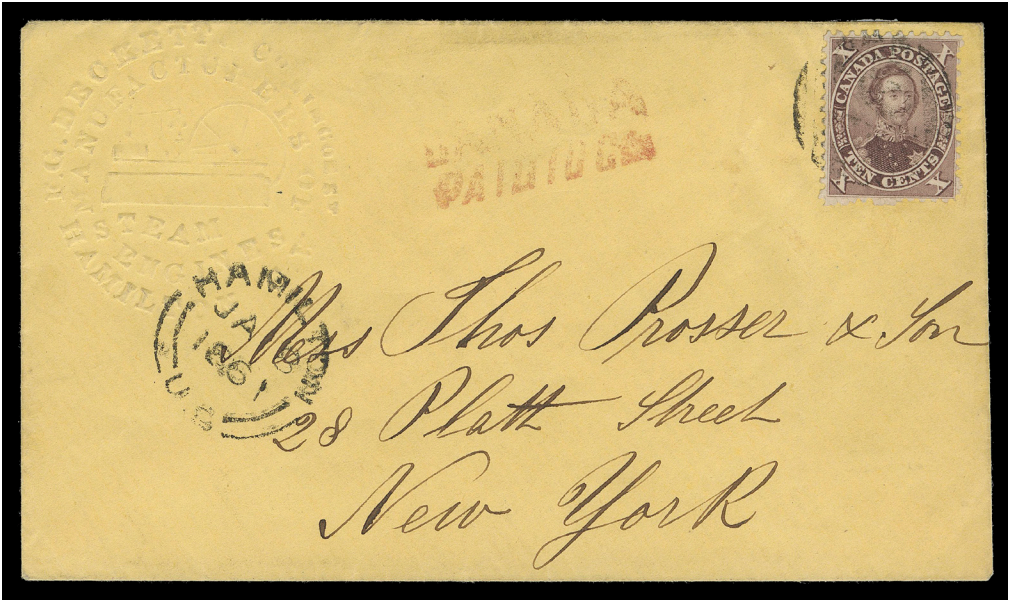 F.G. BECKETT & Co. ALGOMA
MANUFACTURERS OF
STEAM
ENGINES &
HAMIL
CANADA
PAID 10 Cts
CANADA POSTAGE
TEN CENTS
X X X X
HAMILTON
JA
1861
U.C
Mess Thos Prosser & Son
28 Platt Street
New York